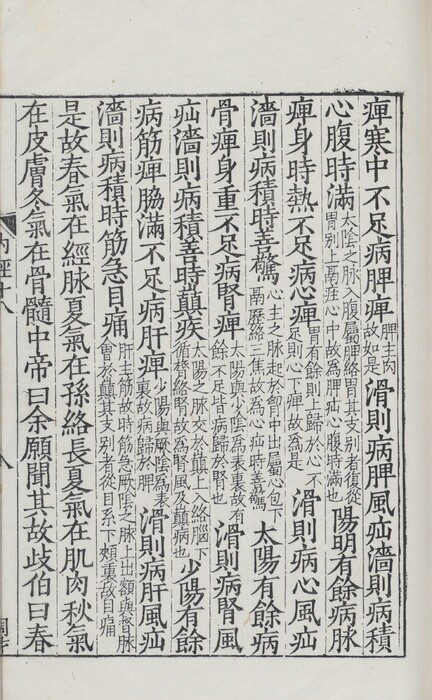 痺寒中不足病脾痺脾主肉故如是滑則病脾風疝濇則病積
心腹時滿太陰之脉入腹屬脾絡胃其支別者復從胃別上鬲注心中故為脾疝心腹時滿也陽明有餘病脉
痺身時熱不足病心痺胃有餘則上歸於心不足則心下痺故為是滑則病心風疝
濇則病積時善驚心主之脉起於胷中出屬心包下鬲歷絡三焦故為心疝時善驚太陽有餘病
骨痺身重不足病腎痺太陽與少陰為表裏故有餘不足皆病歸於腎也滑則病腎風
疝濇則病積善時巔疾太陽之脉交於巔上入絡腦下循膂絡腎故為腎風及巔病也少陽有餘
病筋痺脇滿不足病肝痺少陽與厥陰為表裏故病歸於肝滑則病肝風疝
濇則病積時筋急目痛肝主筋故時筋急厥陰之脉上出額與督脉會於巔其支別者從目系下頰裏故目痛
是故春氣在經脉夏氣在孫絡長夏氣在肌肉秋氣
在皮膚冬氣在骨髓中帝曰余願聞其故歧伯曰春
內經十八
八